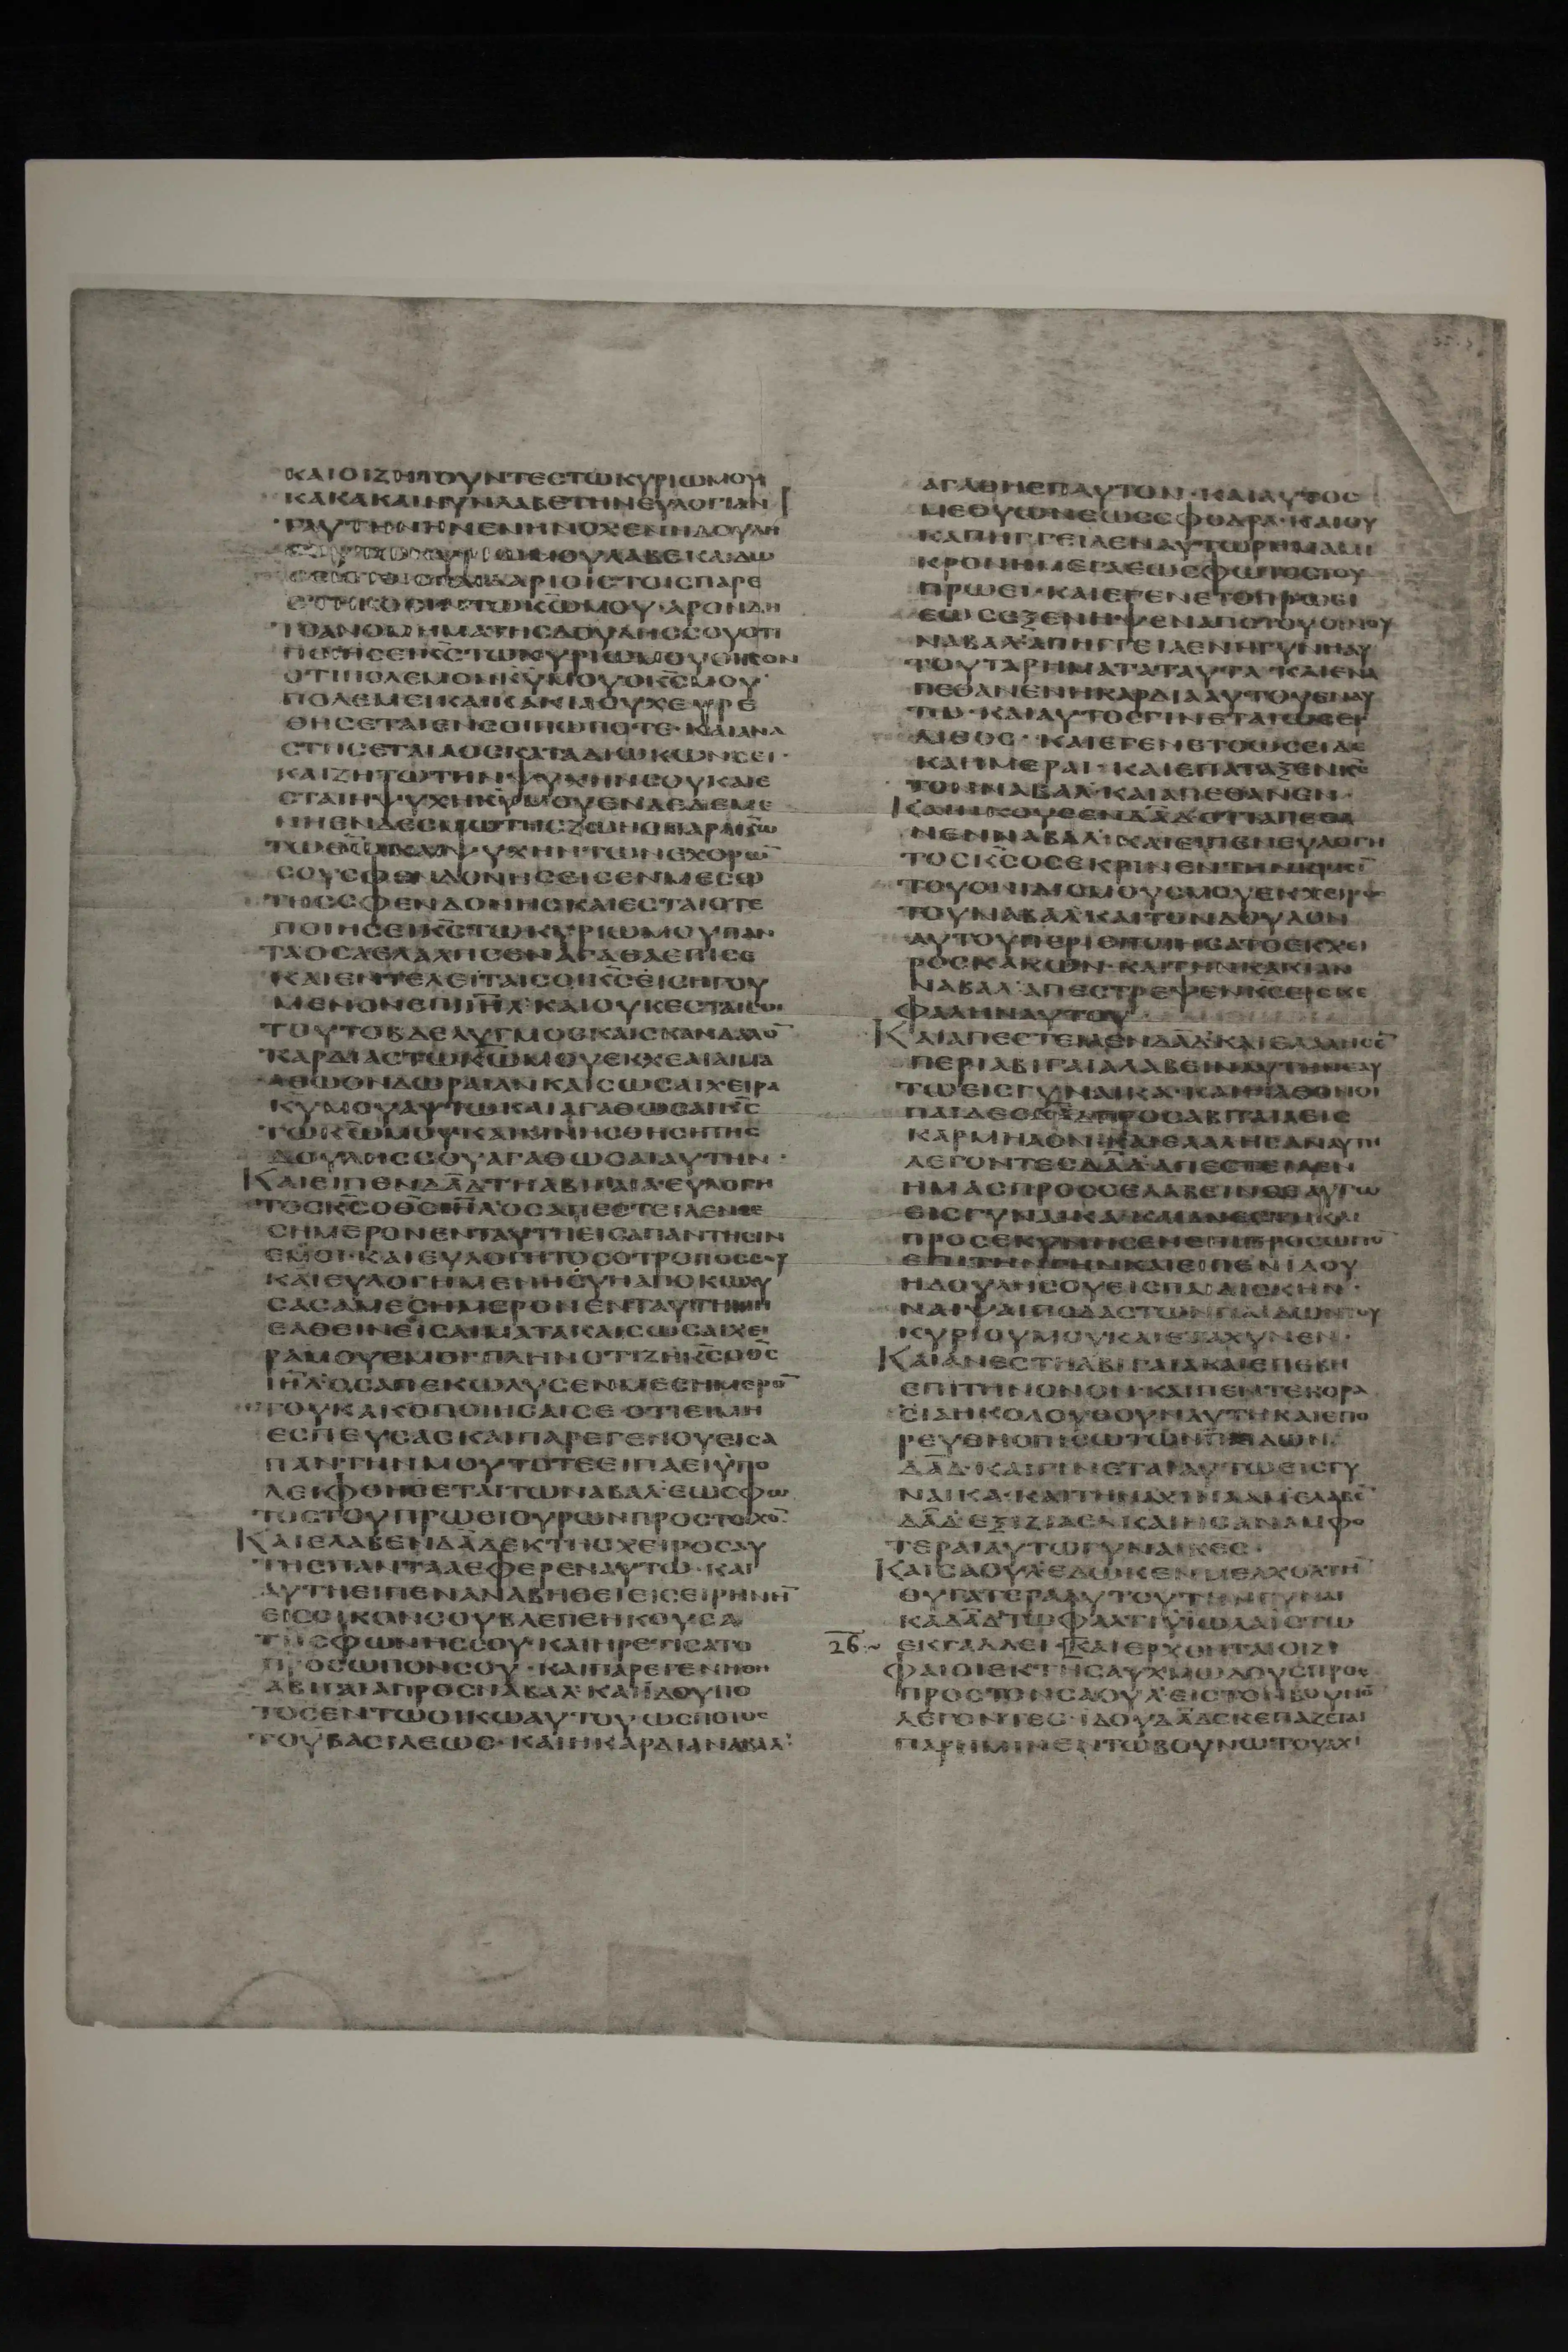 ΚΑΙΟΙΖΗΤΟΥΝΤΕΣΤΩΚΥΡΙΩΜΟΥ
ΚΑΚΑΚΑΙΝΥΝΛΑΒΕΤΗΝΕΥΛΟΓΙΑΝ
ΤΑΥΤΗΝΗΝΕΝΗΝΟΧΕΝΗΔΟΥΛΗ
ΚΥΡΙΩΜΟΥΛΑΒΕΚΑΙΔΩ
ΣΕΙΣΤΟΙΣΠΑΙΔΑΡΙΟΙΣΤΟΙΣΠΑΡΕ
ΣΤΗΚΟΣΙΝΤΩΚ̅Ω̅ΜΟΥ·ΑΡΟΝΔΗ
ΤΟΑΝΟΜΗΜΑΤΗΣΔΟΥΛΗΣΣΟΥΟΤΙ
ΠΟΙΗΣΕΙΚ̅Σ̅ΤΩΚΥΡΙΩΜΟΥΟΙΚΟΝ
ΟΤΙΠΟΛΕΜΟΝΚ̅Υ̅ΜΟΥΟΚ̅Σ̅ΜΟΥ
ΠΟΛΕΜΕΙΚΑΙΚΑΚΙΑΟΥΧΕΥΡΕ
ΘΗΣΕΤΑΙΕΝΣΟΙΠΩΠΟΤΕ·ΚΑΙΑΝΑ
ΣΤΗΣΕΤΑΙΑΟΣΚΑΤΑΔΙΩΚΩΝΣΕΙ·
ΚΑΙΖΗΤΩΤΗΝΨΥΧΗΝΣΟΥΚΑΙΕ
ΣΤΑΙΗΨΥΧΗΚ̅Υ̅ΜΟΥΕΝΔΕΔΕΜΕ
ΝΗΕΝΔΕΣΜΩΤΗΣΖΩΗΣΠΑΡΑΚ̅Ω̅
ΤΩΘ̅Ω̅ΚΑΙΨΥΧΗΝΤΩΝΕΧΘΡΩ̅
ΣΟΥΣΦΕΝΔΟΝΗΣΕΙΣΕΝΜΕΣΩ
ΤΗΣΣΦΕΝΔΟΝΗΣΚΑΙΕΣΤΑΙΟΤΕ
ΠΟΙΗΣΕΙΚ̅Σ̅ΤΩΚΥΡΙΩΜΟΥΠΑΝ
ΤΑΟΣΑΕΛΑΛΗΣΕΝΑΓΑΘΑΕΠΙΣΕ
ΚΑΙΕΝΤΕΛΕΙΤΑΙΣΟΙΚ̅Σ̅ΕΙΣΗΓΟΥ
ΜΕΝΟΝΕΠΙΙ̅Η̅Λ̅·ΚΑΙΟΥΚΕΣΤΑΙΣΟΙ
ΤΟΥΤΟΒΔΕΛΥΓΜΟΣΚΑΙΣΚΑΝΔΑΛΟ̅
ΚΑΡΔΙΑΣΤΩΚ̅Ω̅ΜΟΥΕΚΧΕΑΙΑΙΜΑ
ΑΘΩΟΝΔΩΡΑΙΑΝΚΑΙΣΩΣΑΙΧΕΙΡΑ
Κ̅Υ̅ΜΟΥΑΥΤΩΚΑΙΑΓΑΘΩΣΑΙΚ̅Σ̅
ΤΩΚ̅Ω̅ΜΟΥΚΑΙΜΝΗΣΘΗΣΗΤΗΣ
ΔΟΥΛΗΣΣΟΥΑΓΑΘΩΣΑΙΑΥΤΗΝ·
ΚΑΙΕΙΠΕΝΔ̅Α̅Δ̅ΤΗΑΒΙΓΑΙΑ·ΕΥΛΟΓΗ
ΤΟΣΚ̅Σ̅ΟΘ̅Σ̅Ι̅Η̅Λ̅ΟΣΑΠΕΣΤΕΙΛΕΝΣΕ
ΣΗΜΕΡΟΝΕΝΤΑΥΤΗΕΙΣΑΠΑΝΤΗΣΙΝ
ΕΜΟΙ·ΚΑΙΕΥΛΟΓΗΤΟΣΟΤΡΟΠΟΣΣΟΥ
ΚΑΙΕΥΛΟΓΗΜΕΝΗΣΥΗΑΠΟΚΩΛΥ
ΣΑΣΑΜΕΣΗΜΕΡΟΝΕΝΤΑΥΤΗΜΗ
ΕΛΘΕΙΝΕΙΣΑΙΜΑΤΑΚΑΙΣΩΣΑΙΧΕΙ
ΡΑΜΟΥΕΜΟΙ·ΠΛΗΝΟΤΙΖΗΚ̅Σ̅ΟΘ̅Σ̅
Ι̅Η̅Λ̅ΟΣΑΠΕΚΩΛΥΣΕΝΜΕΣΗΜΕΡΟ̅
ΤΟΥΚΑΚΟΠΟΙΗΣΑΙΣΕ·ΟΤΙΕΙΜΗ
ΕΣΠΕΥΣΑΣΚΑΙΠΑΡΕΓΕΝΟΥΕΙΣΑ
ΠΑΝΤΗΝΜΟΥΤΟΤΕΕΙΠΑΕΙΥΠΟ
ΛΕΙΦΘΗΣΕΤΑΙΤΩΝΑΒΑΛ·ΕΩΣΦΩ
ΤΟΣΤΟΥΠΡΩΕΙΟΥΡΩΝΠΡΟΣΤΟΙΧΟ̅
ΚΑΙΕΛΑΒΕΝΔ̅Α̅Δ̅ΕΚΤΗΣΧΕΙΡΟΣΑΥ
ΤΗΣΠΑΝΤΑΑΕΦΕΡΕΝΑΥΤΩ·ΚΑΙ
ΑΥΤΗΕΙΠΕΝΑΝΑΒΗΘΕΙΕΙΣΕΙΡΗΝΗ̅
ΕΙΣΟΙΚΟΝΣΟΥΒΛΕΠΕΗΚΟΥΣΑ
ΤΗΣΦΩΝΗΣΣΟΥ·ΚΑΙΗΡΕΤΙΣΑΤΟ
ΠΡΟΣΩΠΟΝΣΟΥ·ΚΑΙΠΑΡΕΓΕΝΝΘΗ
ΑΒΙΓΑΙΑΠΡΟΣΝΑΒΑΛ·ΚΑΙΙΔΟΥΠΟ
ΤΟΣΕΝΤΩΟΙΚΩΑΥΤΟΥΩΣΠΟΤΟΣ
ΤΟΥΒΑΣΙΛΕΩΣ·ΚΑΙΗΚΑΡΔΙΑΝΑΒΑΛ
ΑΓΑΘΗΕΠΑΥΤΟΝ·ΚΑΙΑΥΤΟΣ
ΜΕΘΥΩΝΕΩΣΣΦΟΔΡΑ·ΚΑΙΟΥ
ΚΑΠΗΓΓΕΙΛΕΝΑΥΤΩΡΗΜΑΜΙ
ΚΡΟΝΗΜΕΓΑΕΩΣΦΩΤΟΣΤΟΥ
ΠΡΩΕΙ·ΚΑΙΕΓΕΝΕΤΟΠΡΩΕΙ
ΕΩΣΕΞΕΝΗΨΕΝΑΠΟΤΟΥΟΙΝΟΥ
ΝΑΒΑΛ·ΑΠΗΓΓΕΙΛΕΝΗΓΥΝΗΑΥ
ΤΟΥΤΑΡΗΜΑΤΑΤΑΥΤΑ·ΚΑΙΕΝΑ
ΠΕΘΑΝΕΝΗΚΑΡΔΙΑΑΥΤΟΥΕΝΑΥ
ΤΩ·ΚΑΙΑΥΤΟΣΓΙΝΕΤΑΙΩΣΕΙ
ΛΙΘΟΣ·ΚΑΙΕΓΕΝΕΤΟΩΣΕΙΔΕ
ΚΑΗΜΕΡΑΙ·ΚΑΙΕΠΑΤΑΞΕΝΚ̅Σ̅
ΤΟΝΝΑΒΑΛ·ΚΑΙΑΠΕΘΑΝΕΝ·
ΚΑΙΗΚΟΥΣΕΝΔ̅Α̅Δ̅ΟΤΙΑΠΕΘΑ
ΝΕΝΝΑΒΑΛ·ΚΑΙΕΙΠΕΝΕΥΛΟΓΗ
ΤΟΣΚ̅Σ̅ΟΣΕΚΡΙΝΕΝΤΗΝΚΡΙΣΙ̅
ΤΟΥΟΝΙΔΙΣΜΟΥΜΟΥΕΚΧΕΙΡΟΣ
ΤΟΥΝΑΒΑΛ·ΚΑΙΤΟΝΔΟΥΛΟΝ
ΑΥΤΟΥΠΕΡΙΕΠΟΙΗΣΑΤΟΕΚΧΕΙ
ΡΟΣΚΑΚΩΝ·ΚΑΙΤΗΝΚΑΚΙΑΝ
ΝΑΒΑΛ·ΑΠΕΣΤΡΕΨΕΝΚ̅Σ̅ΕΙΣΚΕ
ΦΑΛΗΝΑΥΤΟΥ
ΚΑΙΑΠΕΣΤΕΙΛΕΝΔ̅Α̅Δ̅·ΚΑΙΕΛΑΛΗΣΕ̅
ΠΕΡΙΑΒΙΓΑΙΑΛΑΒΕΙΝΑΥΤΗΝΕΑΥ
ΤΩΕΙΣΓΥΝΑΙΚΑ·ΚΑΙΗΛΘΟΝΟΙ
ΠΑΙΔΕΣΔ̅Α̅Δ̅ΠΡΟΣΑΒΙΓΑΙΑΕΙΣ
ΚΑΡΜΗΛΟΝ·ΚΑΙΕΛΑΛΗΣΑΝΑΥΤΗ
ΛΕΓΟΝΤΕΣΔ̅Α̅Δ̅·ΑΠΕΣΤΕΙΛΕΝ
ΗΜΑΣΠΡΟΣΣΕΛΑΒΕΙΝΣΕΑΥΤΩ
ΕΙΣΓΥΝΑΙΚΑ·ΚΑΙΑΝΕΣΤΗΚΑΙ
ΠΡΟΣΕΚΥΝΗΣΕΝΕΠΙΠΡΟΣΩΠΟ̅
ΕΠΙΤΗΝΓΗΝΚΑΙΕΙΠΕΝΙΔΟΥ
ΗΔΟΥΛΗΣΟΥΕΙΣΠΑΙΔΙΣΚΗΝ·
ΝΙΨΑΙΠΟΔΑΣΤΩΝΠΑΙΔΩΝΤΟΥ
ΚΥΡΙΟΥΜΟΥΚΑΙΕΤΑΧΥΝΕΝ·
ΚΑΙΑΝΕΣΤΗΑΒΙΓΑΙΑΚΑΙΕΠΕΒΗ
ΕΠΙΤΗΝΟΝΟΝ·ΚΑΙΠΕΝΤΕΚΟΡΑ
ΣΙΑΗΚΟΛΟΥΘΟΥΝΑΥΤΗΚΑΙΕΠΟ
ΡΕΥΘΗΟΠΙΣΩΤΩΝΠΑΙΔΩΝ
Δ̅Α̅Δ̅·ΚΑΙΓΙΝΕΤΑΙΑΥΤΩΕΙΣΓΥ
ΝΑΙΚΑ·ΚΑΙΤΗΝΑΧΙΝΑΑΜΕΛΑΒΕ̅
Δ̅Α̅Δ̅ΕΞΙΖΡΑΕΛ·ΚΑΙΗΣΑΝΑΜΦΟ
ΤΕΡΑΙΑΥΤΩΓΥΝΑΙΚΕΣ·
ΚΑΙΣΑΟΥΛ·ΕΔΩΚΕΝΜΕΛΧΟΛΤΗ̅
ΘΥΓΑΤΕΡΑΑΥΤΟΥΤΗΝΓΥΝΑΙ
ΚΑΔ̅Α̅Δ̅ΤΩΦΑΛΤΙΥΙΩΛΑΙΣΤΩ
26 ΕΚΓΑΛΛΕΙ·ΚΑΙΕΡΧΟΝΤΑΙΟΙΖΙ
ΦΑΙΟΙΕΚΤΗΣΑΥΧΜΩΔΟΥΣΠΡΟΣ
ΠΡΟΣΤΟΝΣΑΟΥΛ·ΕΙΣΤΟΝΒΟΥΝΟ̅
ΛΕΓΟΝΤΕΣ·ΙΔΟΥΔ̅Α̅Δ̅ΣΚΕΠΑΖΕΤΑΙ
ΠΑΡΗΜΙΝΕΝΤΩΒΟΥΝΩΤΟΥΑΧΙ